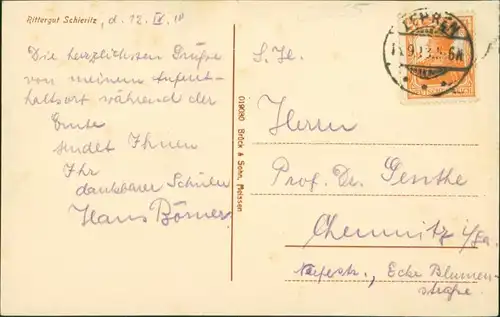 Rittergut Schieritz, d. 12. IX. 18
Die herzlichsten Grüße
von meinem Aufent-
haltsort während der
Ernte
sendet Ihnen
Ihr
dankbarer Schüler
Hans Börner
019080 Brück & Sohn, Meissen
S. H.
Herrn
Prof. Dr. Genthe
Chemnitz i/Sa.
Ecke Blumen-
straße.